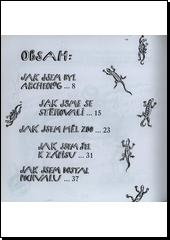 OBSAH:
JAK JSEM BYL
ARCHEOLOG ... 8
JAK JSME SE
STĚHOVALI ... 15
JAK JSEM MĚL ZOO ... 23
JAK JSEM ŠEL
K ZÁPISU ... 31
JAK JSEM DOSTAL
POCHVALU ... 37